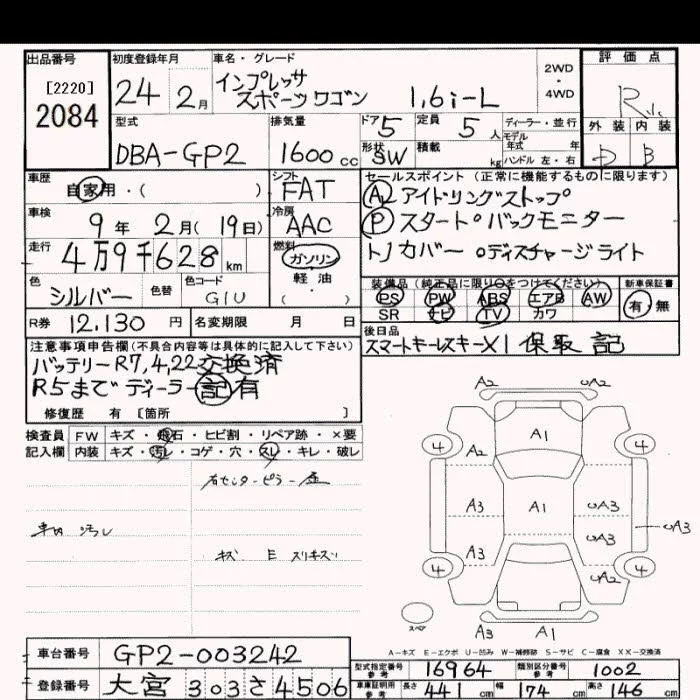 出品番号 初度登録年月 車名・グレード 評価点
[2220] 2084
24 2月 インプレッサ スポーツワゴン 1,6i-L 2WD・4WD R
型式 排気量 ドア 5 定員 5人 ディーラー・並行 外装 内装
モデル年式 年式
DBA-GP2 1600cc 形状 SW 積載 kg ハンドル 左・右 D B
車歴 シフト セールスポイント (正常に機能するものに限ります)
自家用・( ) FAT A2 アイドリングストップ
車検 冷房
9年 2月(19日) AAC P スタート °バックモニター
走行 燃料
4万9千628km ガソリン 軽油 ( ) トノカバー °ディスチャージライト
色 色替 色コード 装備品 (純正品に限り○をつけてください) 新車保証書
シルバー G1U PS PW ABS エアB AW 有 無
SR ナビ TV カワ
R券 12.130円 名変期限 月 日 後日品
スマートキーレスキー×1 保取 記
注意事項申告欄(不具合内容等は具体的に記入して下さい)
バッテリーR7,4,22交換済
R5まで ディーラー記有
修復歴 有 [箇所 ]
検査員 FW キズ・飛石・ヒビ割・リペア跡・×要
記入欄 内装 キズ・汚レ・コゲ・穴・スレ・キレ・破レ
右センターピラー
車内 汚レ
キズ E スリキズ
A2 A2
A1
4 A2 4
A3 A1 UA3
UA3
A3 UA3
4 UA2 4
スペア
A3 A1
A-キズ E-エクボ U-凹み W-補修跡 S-サビ C-腐食 XX-交換済
車台番号 GP2-003242
型式指定番号 参考 16964 類別区分番号 参考 1002
登録番号 大宮 303 さ 4506
車庫証明用 参考 長さ 44 cm 幅 174 cm 高さ 146 cm